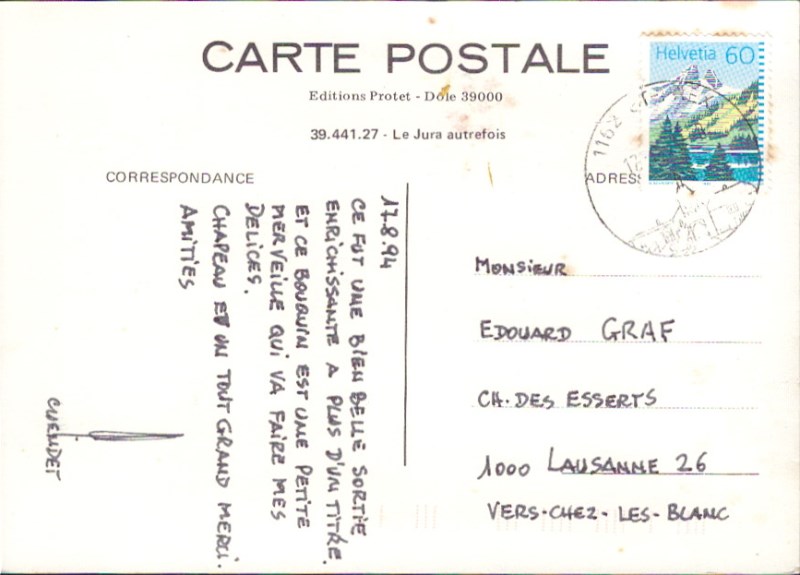 CARTE POSTALE
Editions Protet - Dôle 39000
39.441.27 - Le Jura autrefois
Helvetia 60
1162
CORRESPONDANCE
ADRES
17.8.94
CE FUT UNE BIEN BELLE SORTIE
ENRICHISSANTE A PLUS D'UN TITRE.
ET CE BOUQUIN EST UNE PETITE
MERVEILLE QUI VA FAIRE MES
DELICES.
CHAPEAU ET UN TOUT GRAND MERCI.
AMITIES
CUENDET
MONSIEUR
EDOUARD GRAF
CH. DES ESSERTS
1000 LAUSANNE 26
VERS-CHEZ-LES-BLANC